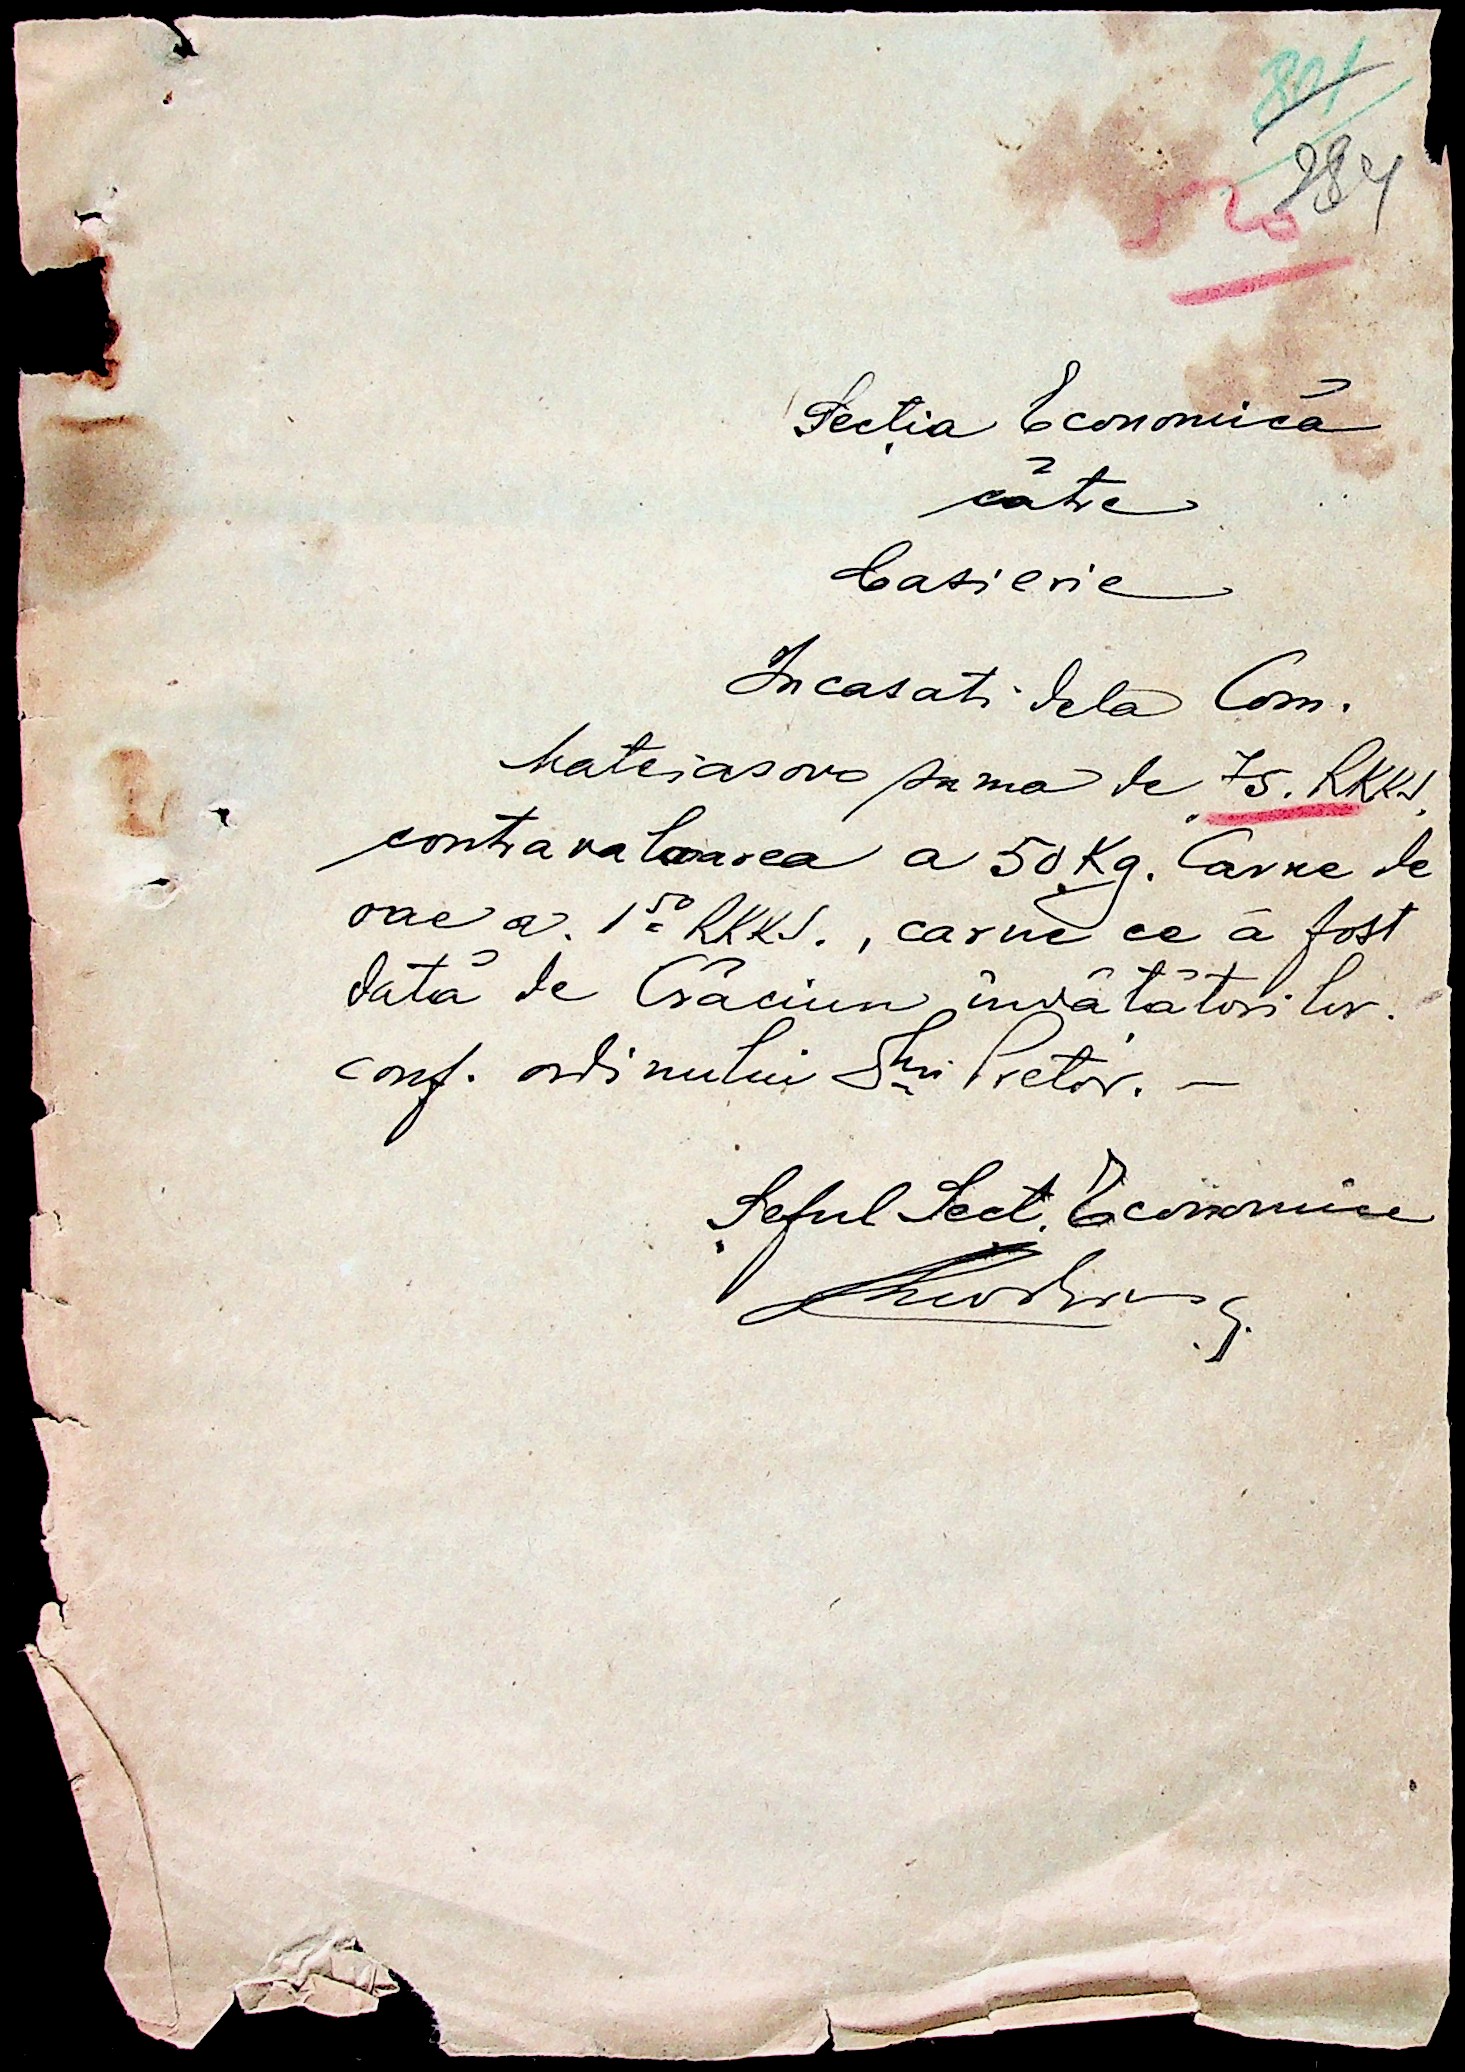 801
284
520
Secția Economică
către
Casierie
Incasati dela Com.
Mateiasovo suma de 75. RKKS.
contravaloarea a 50 Kg. Carne de
oae a. 1⁵⁰ RKKS., carne ce a fost
dată de Crăciun învătătorilor.
conf. ordinului Dlui Pretor. —
Șeful Sect. Economice
G.